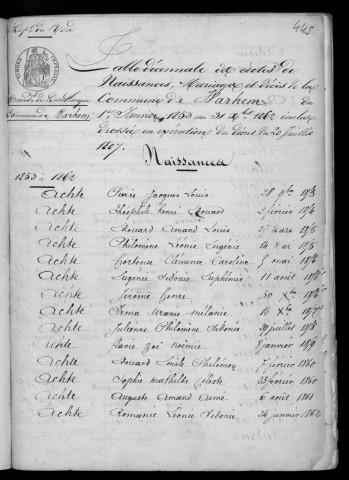 445
Dépt du Nord
Table décennale des actes de
Naissances, Mariages et décès de la
Commune de Warhem du
1er Janvier 1853 au 31 Xbre 1862 inclus
dressée en exécution du décret du 20 Juillet
1807.
Commune de Warhem
Naissances
1853 à 1862
Achte Pierre Jacques Louis 28 9bre 1853
Achte Théophile Henri Edouard 2 février 1854
Achte Edouard Amand Louis mars 1855
Achte Philomène Léonie Eugénie 14 mai 1855
Achte Hortense Clémence Caroline 5 mai 1856
Achte Eugénie Sidonie Euphémie 11 août
Achte Jérôme Henri 30 Xbre
Achte Irma Uranie Mélanie 14 Xbre
Achte Julienne Philomène Sidonie 29 juillet 1858
Achte Flavie Zoé Noémie 8 janvier 1859
Achte Edouard Emile Philémon 7 février 1860
Achte Sophie Mathilde Céleste 23 février 1860
Achte Auguste Amand Aimé 6 août 1861
Achte Romanie Léonie Sidonie 24 janvier 1862